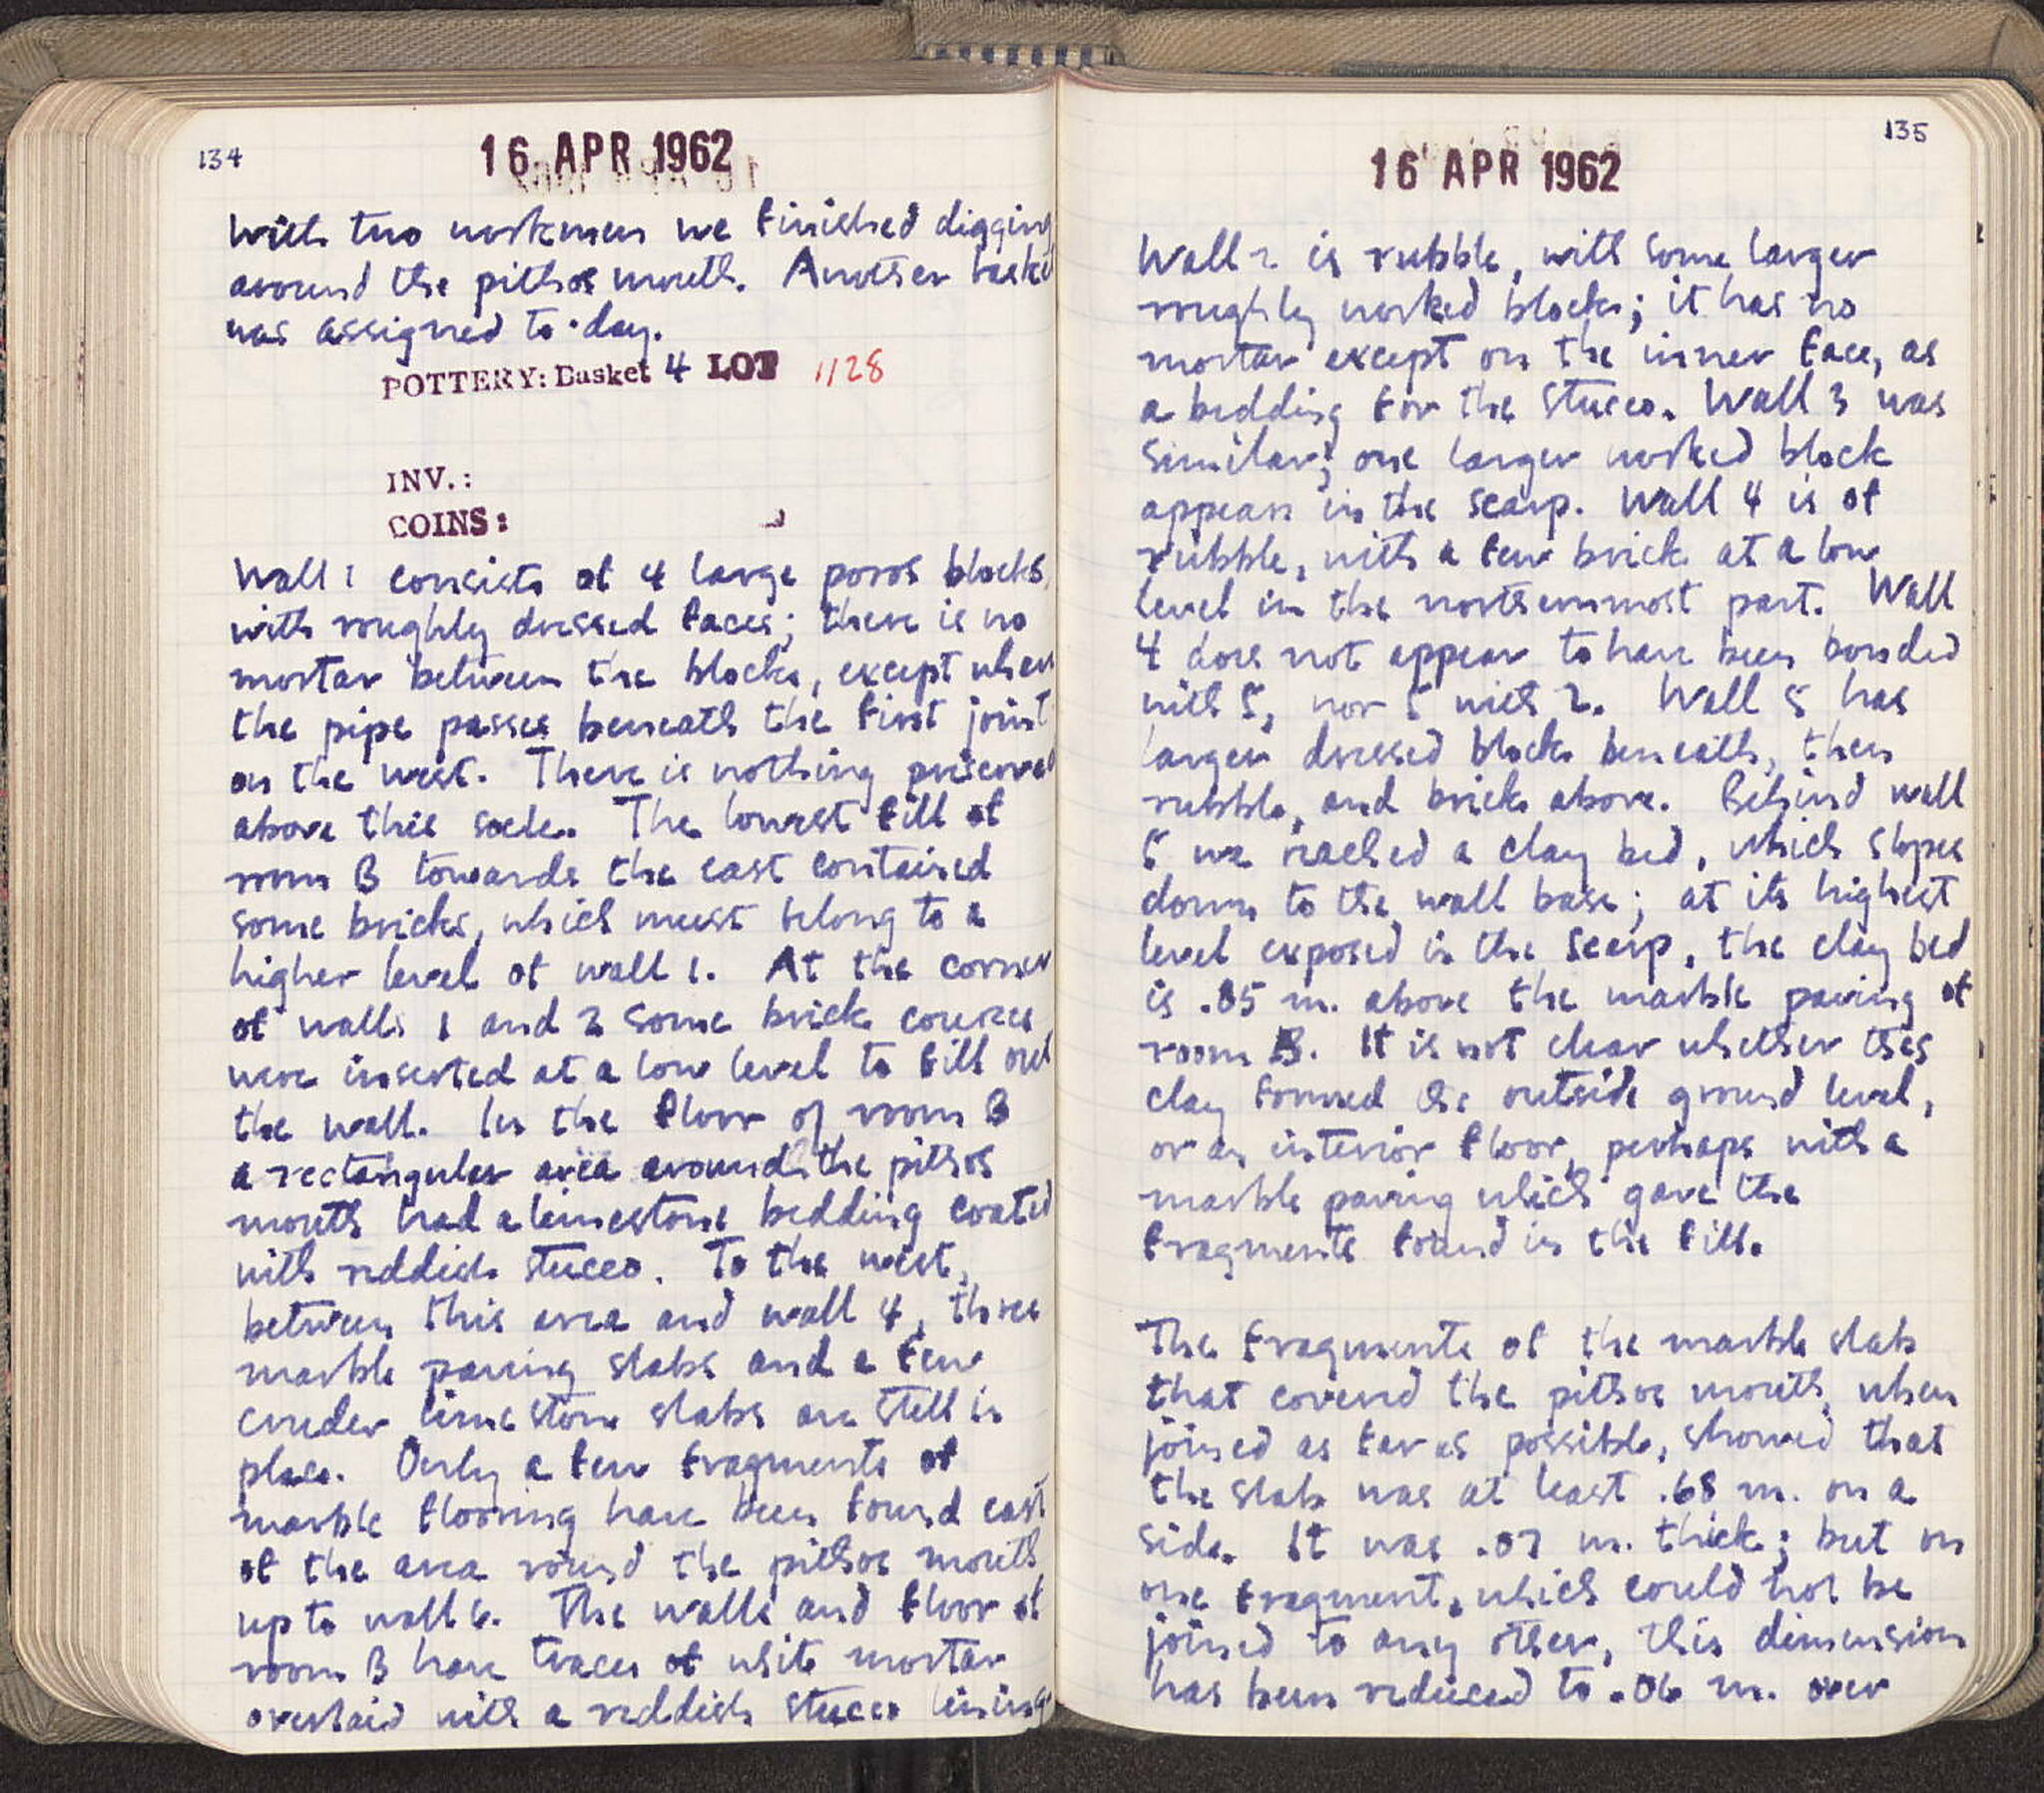 134
16 APR 1962
With two workmen we finished digging
around the pithos mouth. Another basket
was assigned to-day.
POTTERY: Basket 4 LOT 1128
INV.:
COINS:
Wall 1 consists of 4 large poros blocks,
with roughly dressed faces; there is no
mortar between the blocks, except where
the pipe passes beneath the first joint
on the west. There is nothing preserved
above this socle. The lowest fill of
room B towards the east contained
some bricks, which must belong to a
higher level of wall 1. At the corner
of walls 1 and 2 some brick courses
were inserted at a low level to fill out
the wall. In the floor of room B
a rectangular area around the pithos
mouth had a limestone bedding coated
with reddish stucco. To the west,
between this area and wall 4, three
marble paving slabs and a few
cruder limestone slabs are still in
place. Only a few fragments of
marble flooring have been found east
of the area round the pithos mouth
up to wall 6. The walls and floor of
room B have traces of white mortar
overlaid with a reddish stucco lining.
135
16 APR 1962
Wall 2 is rubble, with some larger
roughly worked blocks; it has no
mortar except on the inner face, as
a bedding for the stucco. Wall 3 was
similar; one larger worked block
appears in the scarp. Wall 4 is of
rubble, with a few bricks at a low
level in the northernmost part. Wall
4 does not appear to have been bonded
with 5, nor 5 with 2. Wall 5 has
larger dressed blocks beneath, then
rubble, and bricks above. Behind wall
5 we reached a clay bed, which slopes
down to the wall base; at its highest
level exposed in the scarp, the clay bed
is .85 m. above the marble paving of
room B. It is not clear whether this
clay formed the outside ground level,
or an interior floor, perhaps with a
marble paving which gave the
fragments found in the fill.
The fragments of the marble slab
that covered the pithos mouth, when
joined as far as possible, showed that
the slab was at least .68 m. on a
side. It was .07 m. thick; but on
one fragment, which could not be
joined to any other, this dimension
has been reduced to .06 m. over